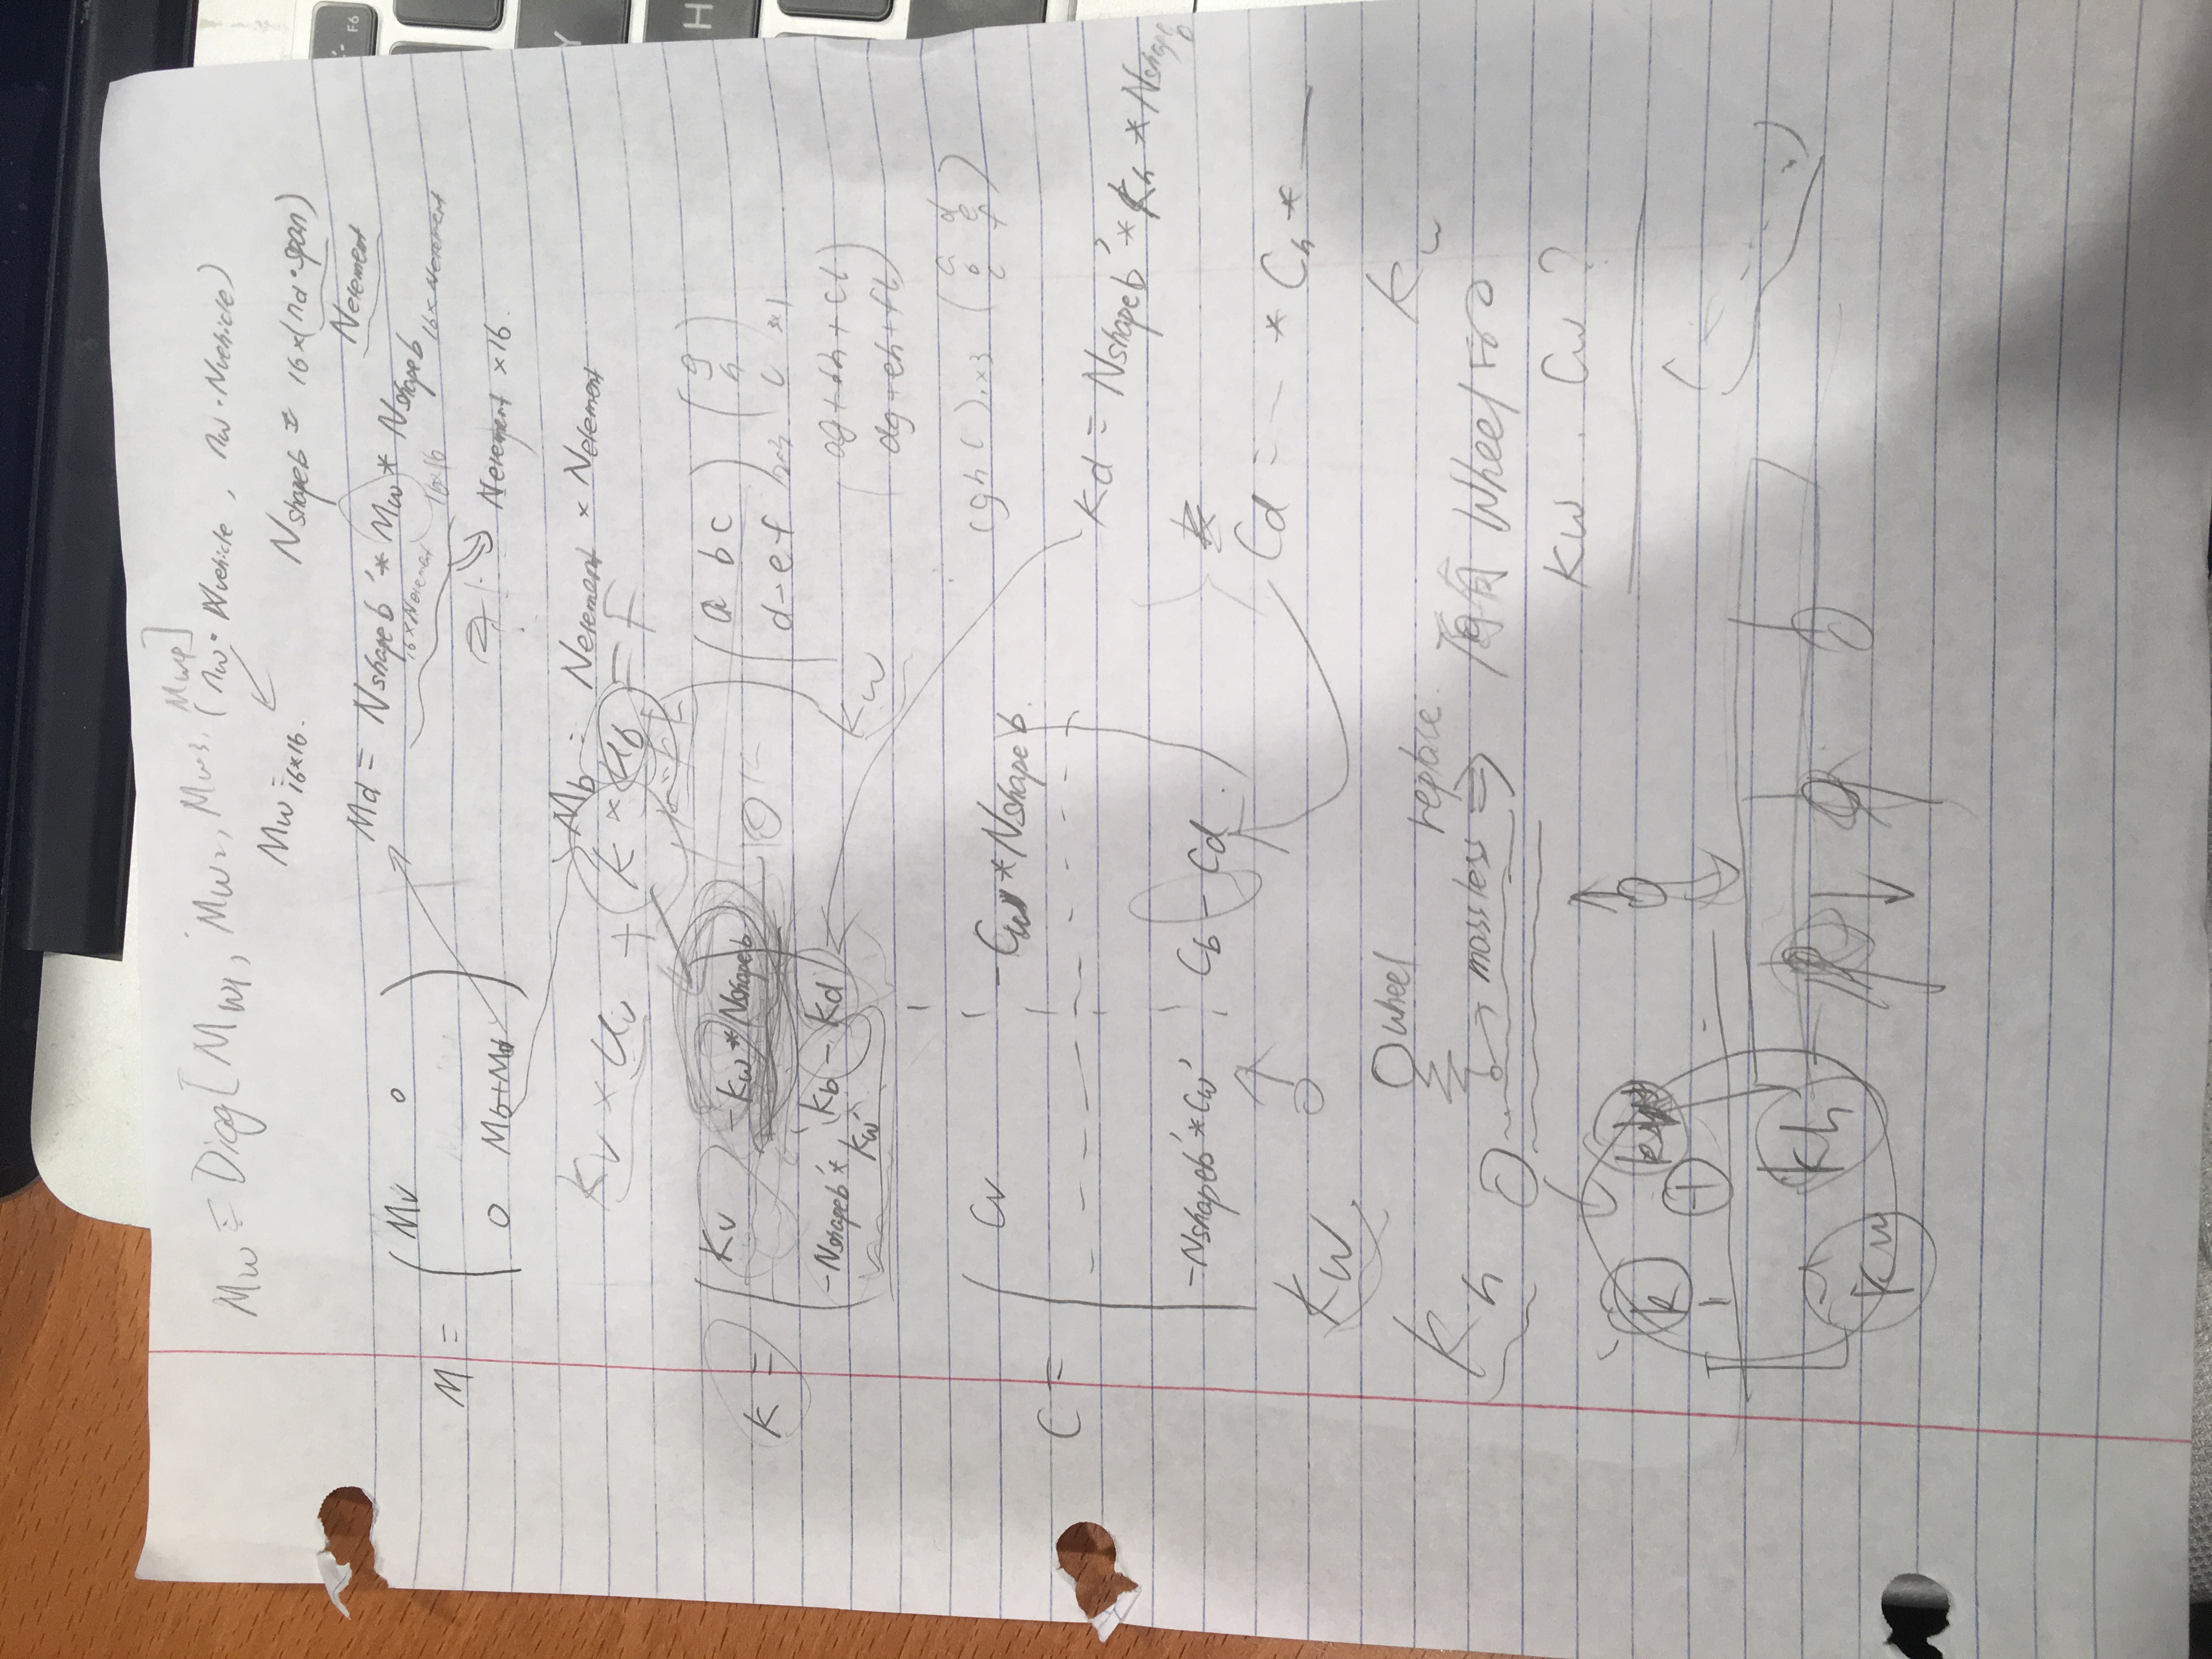 Mw = Diag[Mw1, Mw2, Mw3, Mw4] (nw·Nvehicle, nw·Nvehicle)
Mw = 16×16.
Nshapeb = 16×(nd·span)
Nelement
Md = Nshapeb' * Mw * Nshapeb
16×Nelement 16×16 16×Nelement
Nelement ×16.
M = ( Mv 0
0 Mb+Md )
Mb = Nelement × Nelement
Kv × Uv + K × Ub = F
K = ( Kv -Kw*Nshapeb
-Nshapeb'* Kw' Kb - Kd )
0
Kw
( a b c
d e f ) 2×3
( g
h
i ) 3×1
( ag+bh+ci
dg+eh+fi )
(g h i) 1×3 ( a d
b e
c f )
C = ( Cv -Cw*Nshapeb.
-Nshapeb'*Cw' Cb - Cd )
Kd = Nshapeb' * Kh * Nshapeb
Cd = — * Ch * —
Kw
Kh
wheel
massless ⇒
replace.
Kw
Wheel
Kw . Cw ?
K
+
Kh
Kw
F6
Y
H